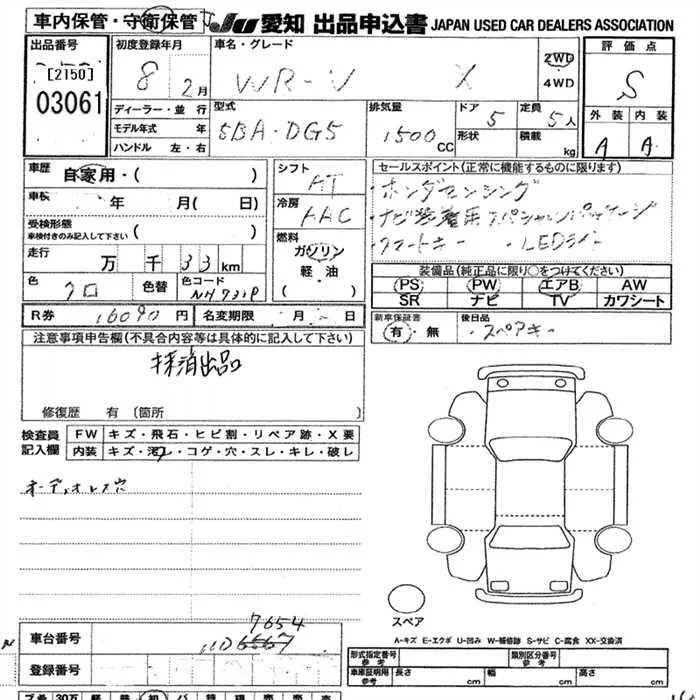 車内保管・守衛保管 JU 愛知 出品申込書 JAPAN USED CAR DEALERS ASSOCIATION
出品番号 初度登録年月 車名・グレード 評価点
[2150] 8 2月 WR-V X 2WD 4WD S
03061 ディーラー・並行 型式 排気量 ドア 定員 外装 内装
モデル年式 年 5BA-DG5 1500CC 5 5人 A A
ハンドル 左・右 形状 積載 kg
車歴 自家用・( ) シフト AT セールスポイント(正常に機能するものに限ります)
車検 年 月( 日) 冷房 AAC ・ホンダセンシング
受検形態 車検付きのみ記入して下さい ( ) ・ナビ装着用スペシャルパッケージ
走行 万 千 33km 燃料 ガソリン 軽油 ( ) ・スマートキー ・LED
色 クロ 色替 色コード NH731P 装備品(純正品に限り○をつけてください)
PS PW エアB AW
SR ナビ TV カワシート
R券 16090円 名変期限 月 日 新車保証書 有・無 後日品 ・スペアキー
注意事項申告欄(不具合内容等は具体的に記入して下さい)
抹消出品
修復歴 有 (箇所 )
検査員記入欄 FW キズ・飛石・ヒビ割・リペア跡・X要
内装 キズ・汚レ・コゲ・穴・スレ・キレ・破レ
オーディオレス穴
スペア
A-キズ E-エクボ U-凹み W-補修跡 S-サビ C-腐食 XX-交換済
車台番号 7654
登録番号
形式指定番号 参考 類別区分番号 参考
車庫証明用 参考 長さ cm 幅 cm 高さ cm